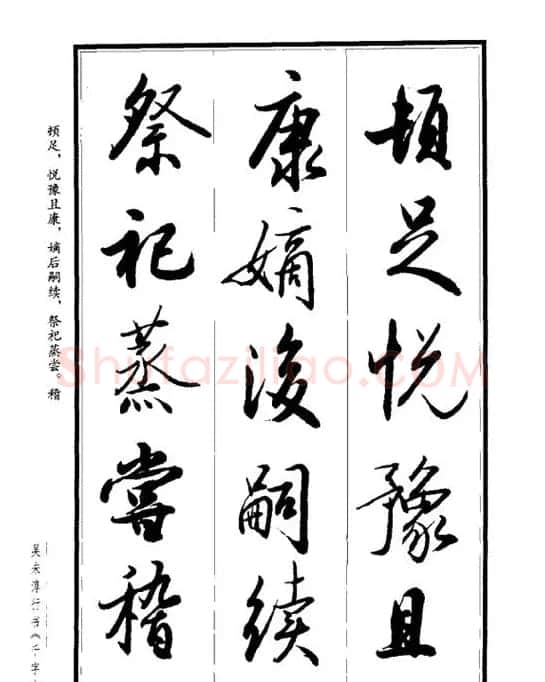 頓足悦豫且
康嫡後嗣续
祭祀蒸嘗稽
顿足，悦豫且康，嫡后嗣续，祭祀蒸尝。稽
吴未淳行书《千字
Shufaziliao.COM